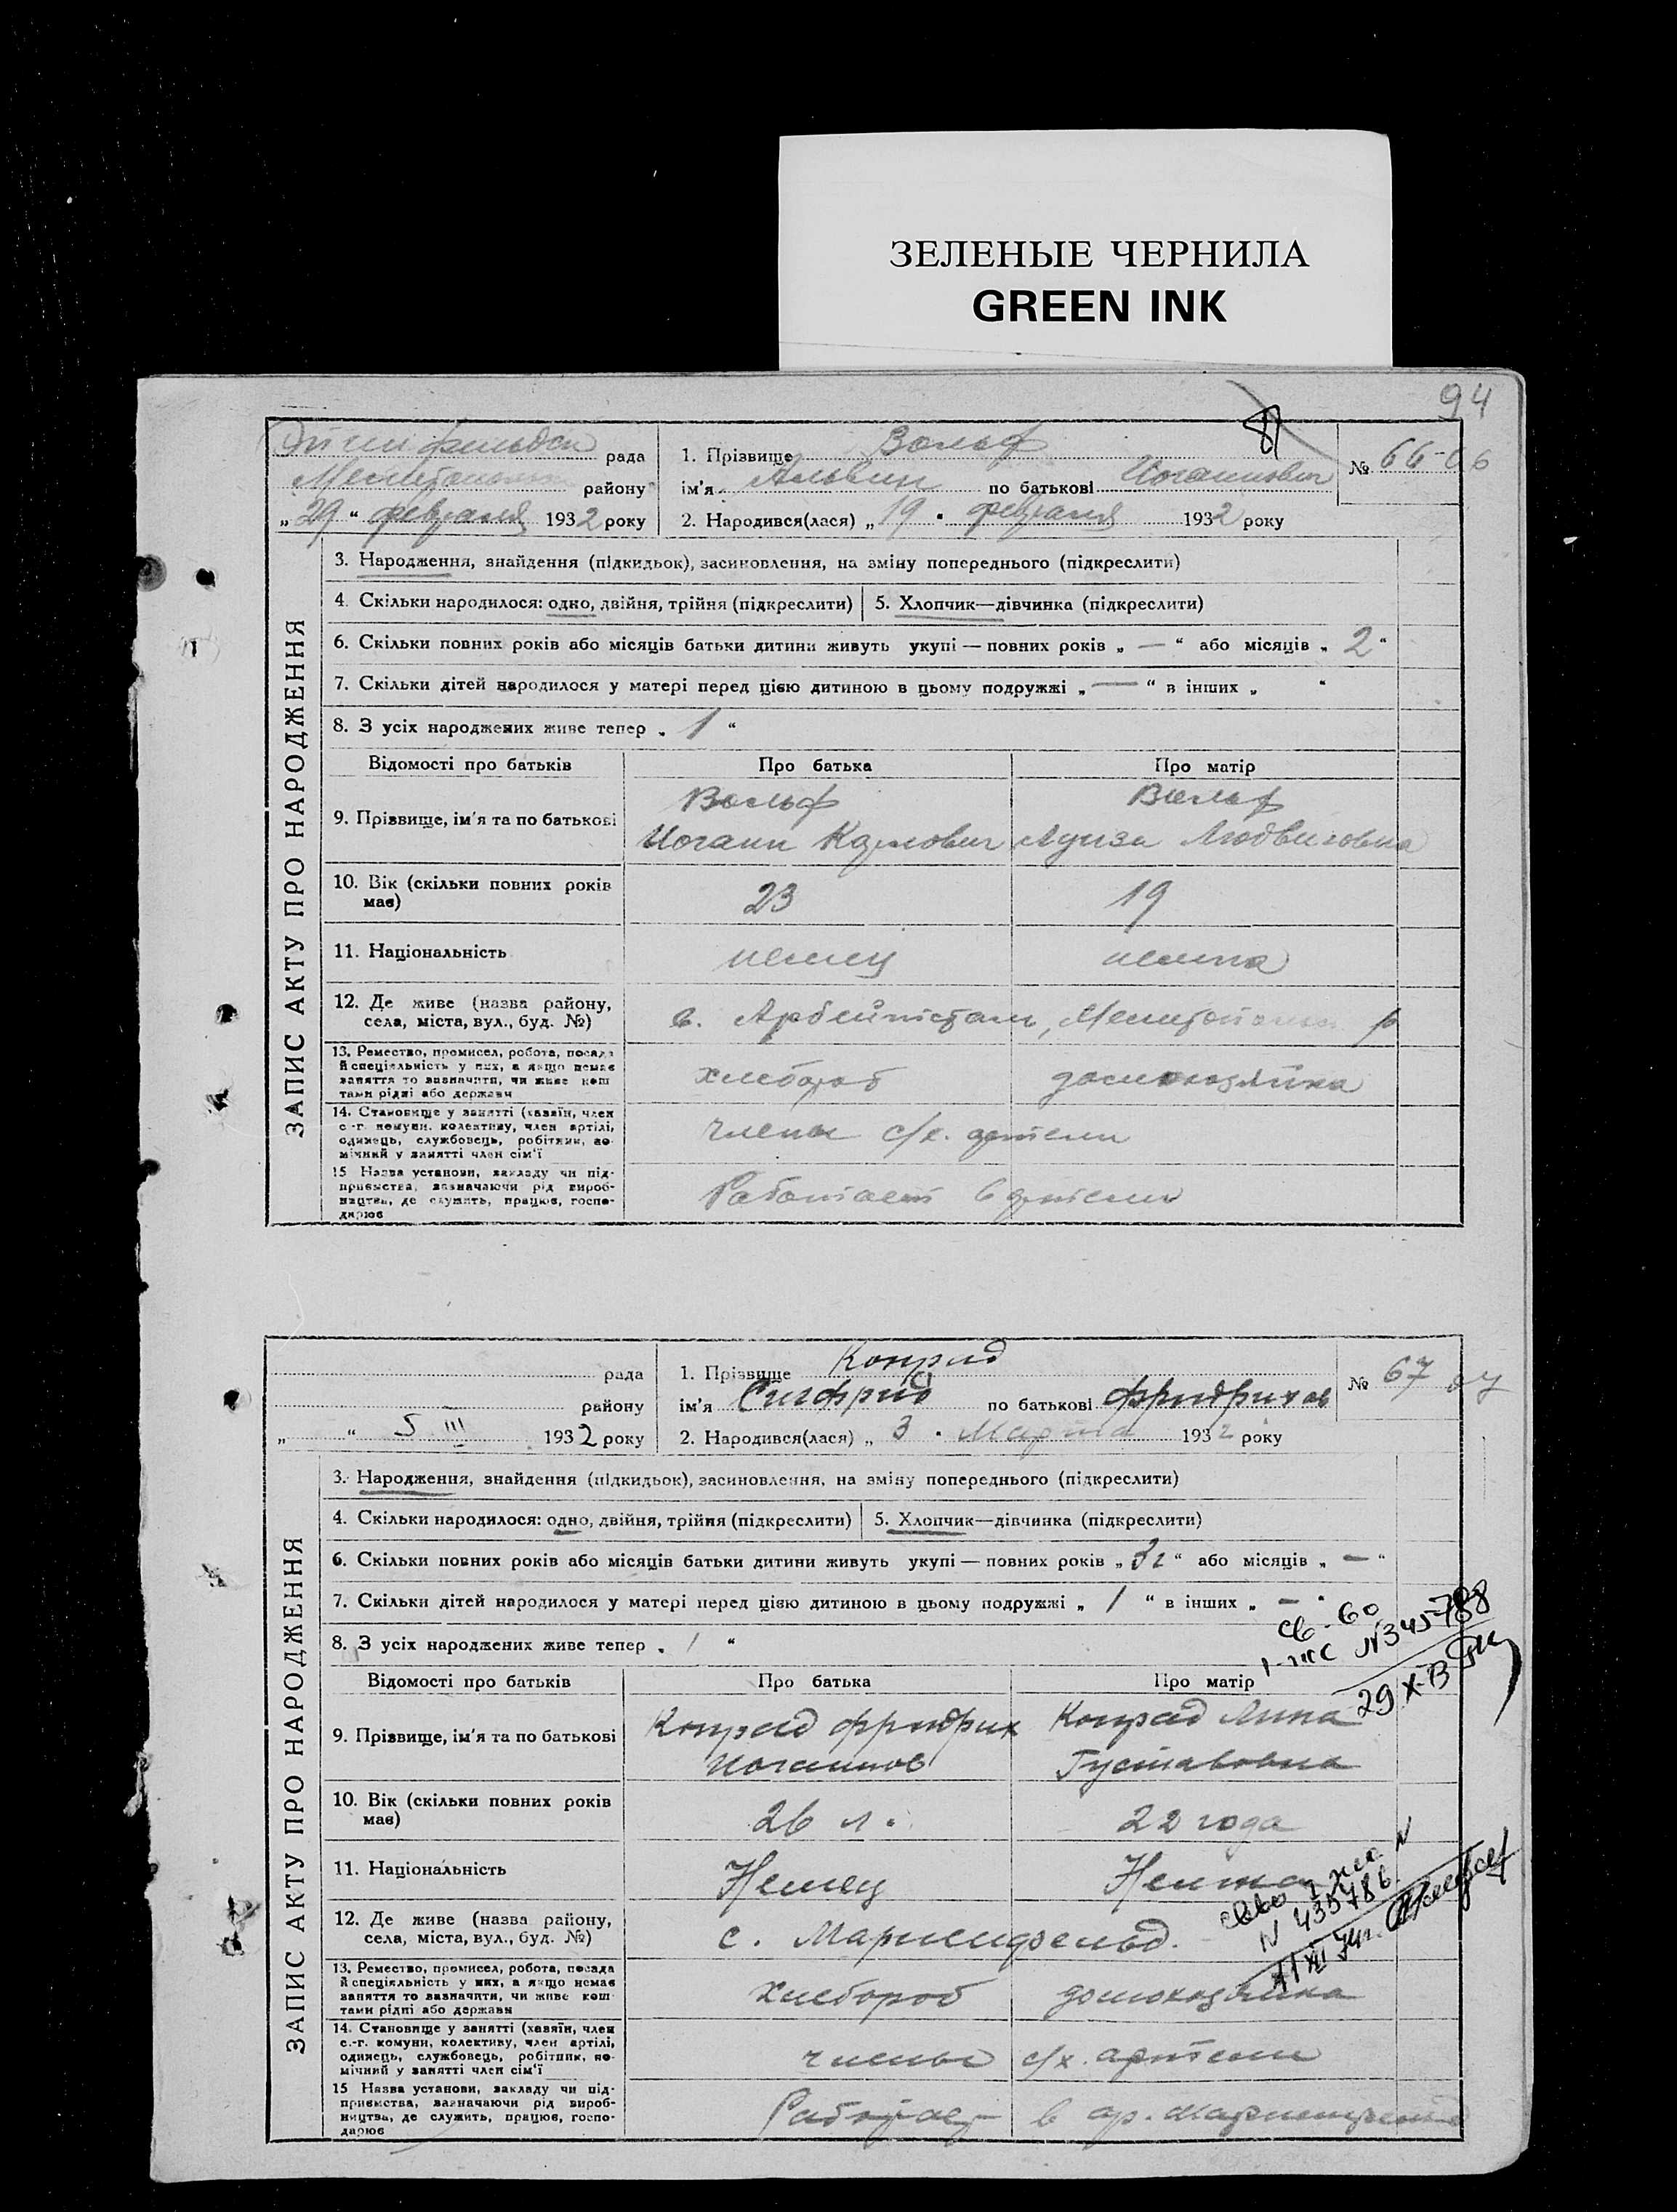 ЗЕЛЕНЫЕ ЧЕРНИЛА
GREEN INK
94
ЗАПИС АКТУ ПРО НАРОДЖЕННЯ
рада
району
„29“ февраля 1932 року
1. Прізвище Вольф
ім'я Альвин по батькові Иоганнович
2. Народився(лася) „19“ февраля 1932 року
№ 66
3. Народження, знайдення (підкидьок), засиновлення, на зміну попереднього (підкреслити)
4. Скільки народилося: одно, двійня, трійня (підкреслити) 5. Хлопчик—дівчинка (підкреслити)
6. Скільки повних років або місяців батьки дитини живуть укупі — повних років „—“ або місяців „2“
7. Скільки дітей народилося у матері перед цією дитиною в цьому подружжі „—“ в інших „ “
8. З усіх народжених живе тепер „1“
Відомості про батьків Про батька Про матір
9. Прізвище, ім'я та по батькові
Вольф Вольф
Иоганн Карлович Луиза Людвиговна
10. Вік (скільки повних років має) 23 19
11. Національність немец немка
12. Де живе (назва району, села, міста, вул., буд. №)
с.
13. Ремество, промисел, робота, посада й спеціяльність у них, а якщо немає заняття то визначити, чи живе коштами рідні або держави
хлебороб домохозяйка
14. Становище у занятті (хазяїн, член с.-г. комуни, колективу, член артілі, одинець, службовець, робітник, помічний у занятті член сім'ї
члены с/х. артели
15 Назва установи, закладу чи підприємства, зазначаючи рід виробництва, де служить, працює, господарює
Работает в артели
ЗАПИС АКТУ ПРО НАРОДЖЕННЯ
рада
району
„ “ 5 III 1932 року
1. Прізвище Конрад
ім'я Сигфрид по батькові Фридрихов
2. Народився(лася) „3“ Марта 1932 року
№ 67
3. Народження, знайдення (підкидьок), засиновлення, на зміну попереднього (підкреслити)
4. Скільки народилося: одно, двійня, трійня (підкреслити) 5. Хлопчик—дівчинка (підкреслити)
6. Скільки повних років або місяців батьки дитини живуть укупі — повних років „3 г“ або місяців „—“
7. Скільки дітей народилося у матері перед цією дитиною в цьому подружжі „1“ в інших „—“
8. З усіх народжених живе тепер „1“
Відомості про батьків Про батька Про матір
9. Прізвище, ім'я та по батькові
Конрад Фридрих Конрад Лина
Иоганнов Густавовна
10. Вік (скільки повних років має) 26 л. 22 года
11. Національність Немец Немка
12. Де живе (назва району, села, міста, вул., буд. №)
с. Мариенфельд.
13. Ремество, промисел, робота, посада й спеціяльність у них, а якщо немає заняття то визначити, чи живе коштами рідні або держави
Хлебороб домохозяйка
14. Становище у занятті (хазяїн, член с.-г. комуни, колективу, член артілі, одинець, службовець, робітник, помічний у занятті член сім'ї
члены с/х. артели
15 Назва установи, закладу чи підприємства, зазначаючи рід виробництва, де служить, працює, господарює
Работает в ар. Мариенфельд